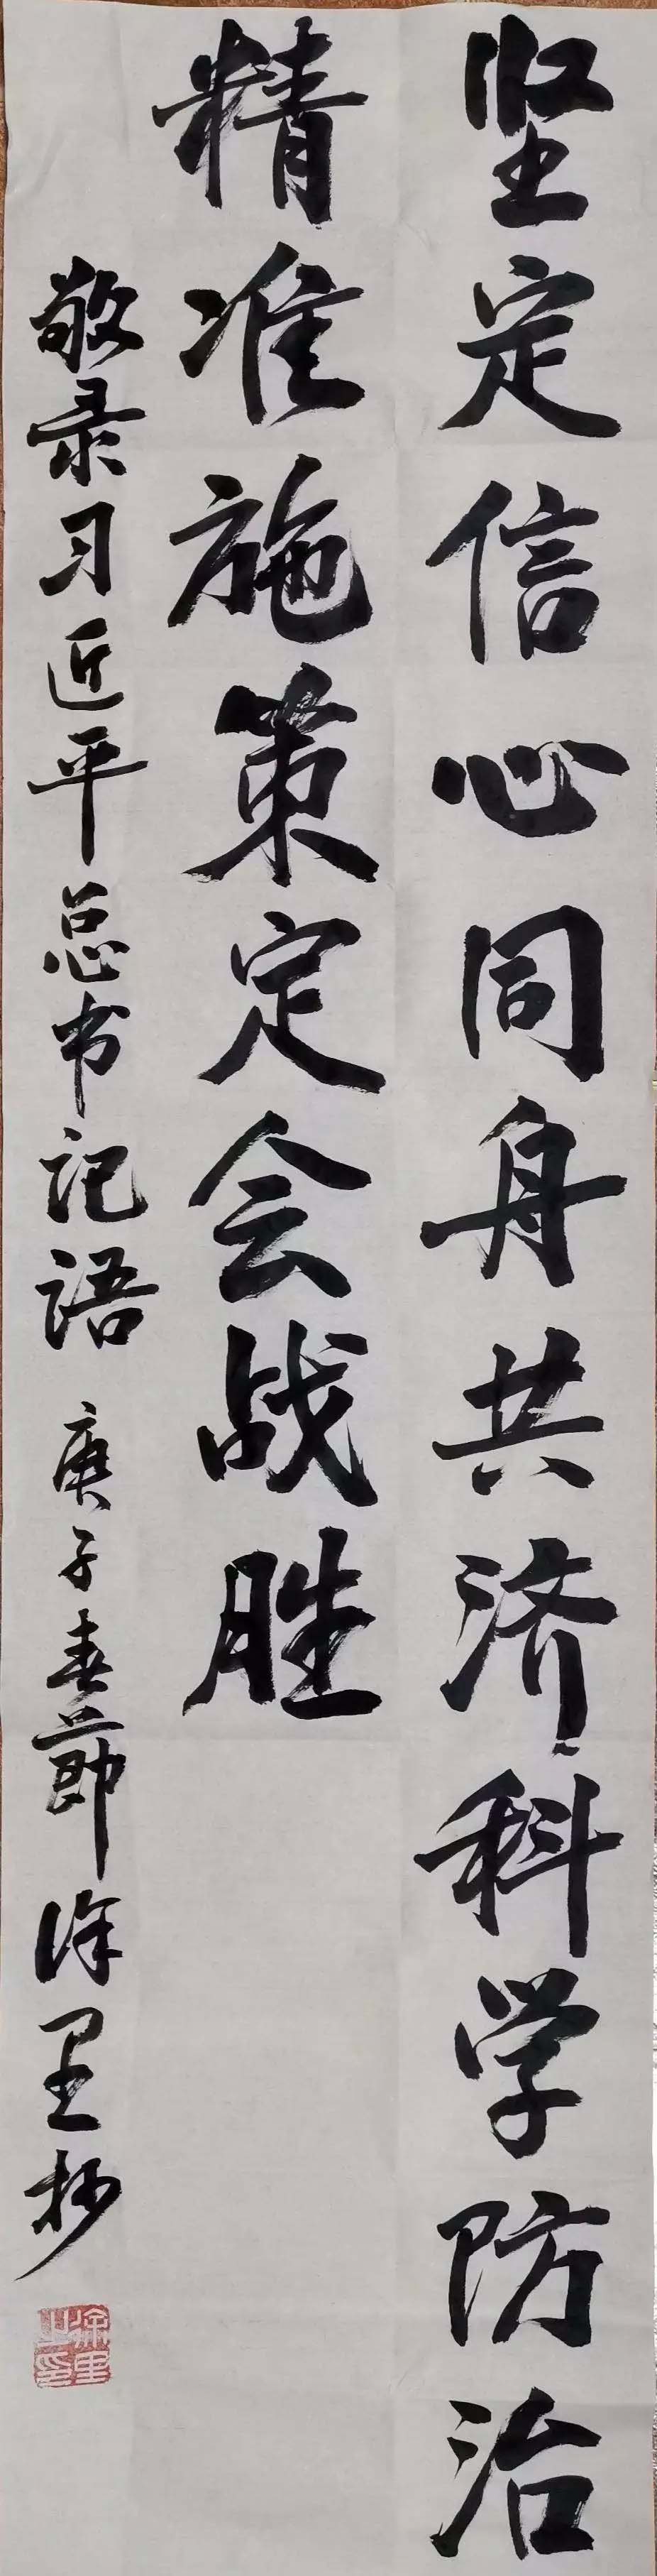 坚定信心同舟共济科学防治
精准施策定会战胜
敬录习近平总书记语 庚子春节 徐里抄
徐里之印